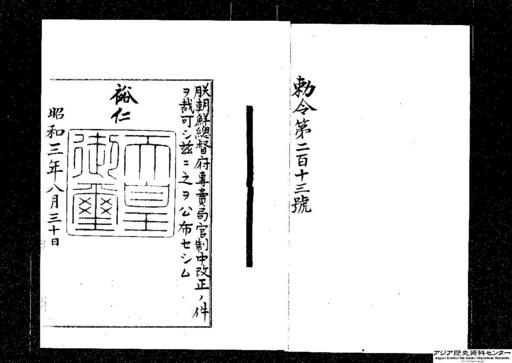 勅令第二百十三號
朕朝鮮總督府專賣局官制中改正ノ件
ヲ裁可シ茲ニ之ヲ公布セシム
裕仁
天皇
御璽
昭和三年八月三十日
アジア歴史資料センター
Japan Center for Asian Historical Records